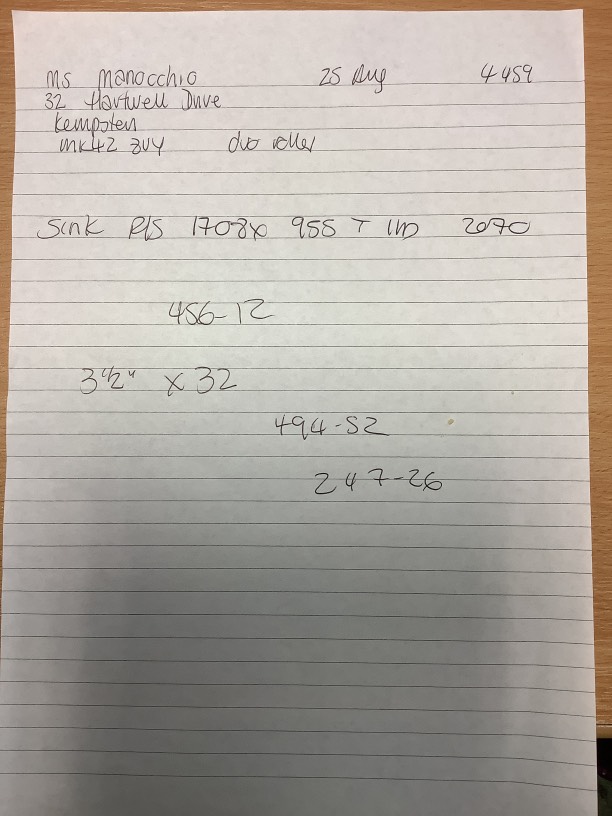 Ms Manocchio 25 Aug 4459
32 Hartwell Drive
Kempston
MK42 8UY duo roller
Sink R/S 1708 x 955 T 1M 2070
456-12
3 1/2" x 32
494-52
247-26